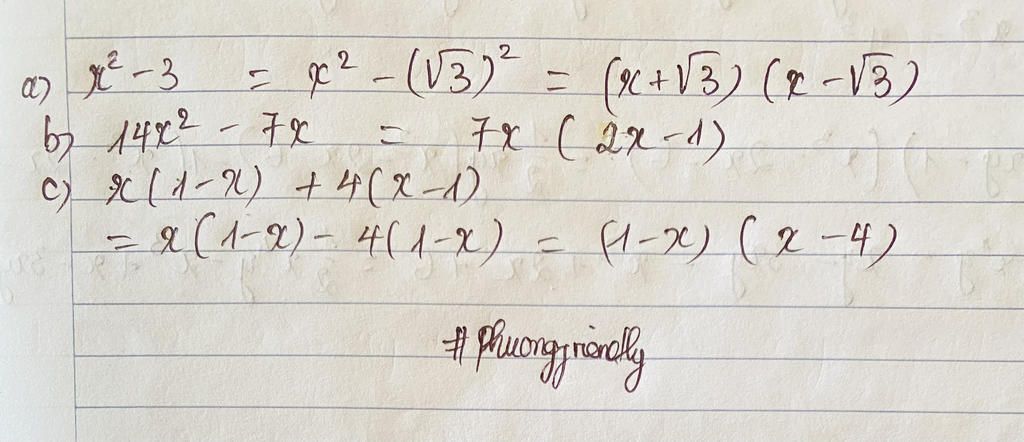 a) x² - 3 = x² - (√3)² = (x + √3) (x - √3)
b) 14x² - 7x = 7x (2x - 1)
c) x(1 - x) + 4(x - 1)
= x(1 - x) - 4(1 - x) = (1 - x) (x - 4)
# phuongfriendly